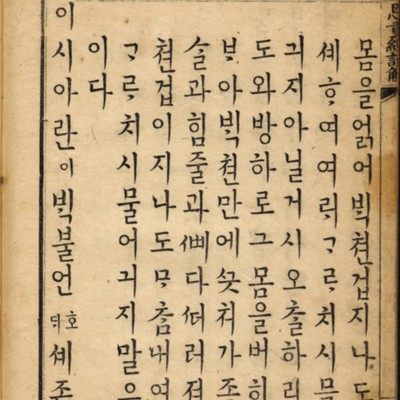 恩重經諺解
몸을얽어ᄇᆡᆨ쳔겁지나도
셰ᄒᆞ여여ᄅᆡᄀᆞᄅᆞ치시믈
긔지아닐거시오츌하리
도와방하로그몸을버히
ᄇᆞ아ᄇᆡᆨ쳔만에 치가
슬과힘줄과ᄲᅧ다ᄯᅥ러져
쳔겁이지나도ᄆᆞᄎᆞᆷ내여
ᄀᆞᄅᆞ치시믈어긔지말으
이다
이시아란이ᄇᆡᆨ불언호ᄃᆡ셰존